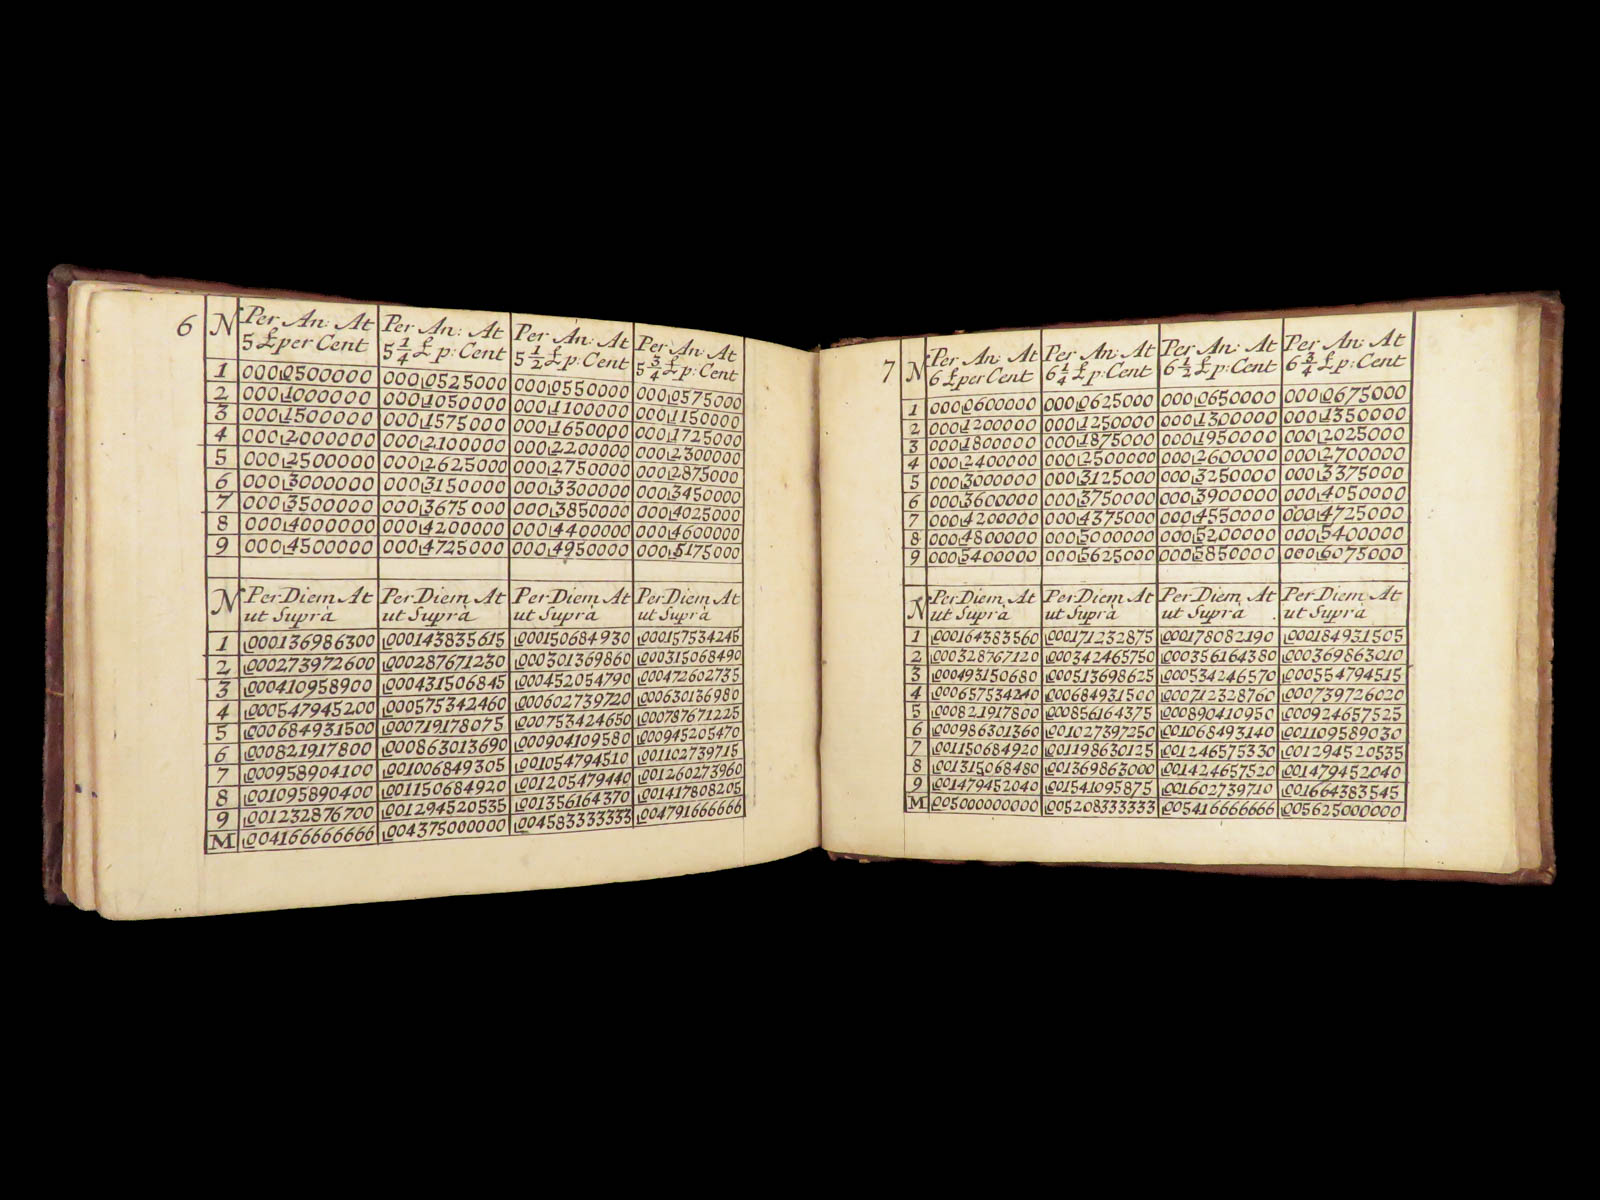 6
N Per An: At Per An: At Per An: At Per An: At
5 £ per Cent 5 1/4 £ p: Cent 5 1/2 £ p: Cent 5 3/4 £ p: Cent
1 000⌊0500000 000⌊0525000 000⌊0550000 000⌊0575000
2 000⌊1000000 000⌊1050000 000⌊1100000 000⌊1150000
3 000⌊1500000 000⌊1575000 000⌊1650000 000⌊1725000
4 000⌊2000000 000⌊2100000 000⌊2200000 000⌊2300000
5 000⌊2500000 000⌊2625000 000⌊2750000 000⌊2875000
6 000⌊3000000 000⌊3150000 000⌊3300000 000⌊3450000
7 000⌊3500000 000⌊3675000 000⌊3850000 000⌊4025000
8 000⌊4000000 000⌊4200000 000⌊4400000 000⌊4600000
9 000⌊4500000 000⌊4725000 000⌊4950000 000⌊5175000
N Per Diem At Per Diem At Per Diem At Per Diem At
ut Suprà ut Suprà ut Suprà ut Suprà
1 ⌊000136986300 ⌊000143835615 ⌊000150684930 ⌊000157534245
2 ⌊000273972600 ⌊000287671230 ⌊000301369860 ⌊000315068490
3 ⌊000410958900 ⌊000431506845 ⌊000452054790 ⌊000472602735
4 ⌊000547945200 ⌊000575342460 ⌊000602739720 ⌊000630136980
5 ⌊000684931500 ⌊000719178075 ⌊000753424650 ⌊000787671225
6 ⌊000821917800 ⌊000863013690 ⌊000904109580 ⌊000945205470
7 ⌊000958904100 ⌊001006849305 ⌊001054794510 ⌊001102739715
8 ⌊001095890400 ⌊001150684920 ⌊001205479440 ⌊001260273960
9 ⌊001232876700 ⌊001294520535 ⌊001356164370 ⌊001417808205
M ⌊004166666666 ⌊004375000000 ⌊004583333333 ⌊004791666666
7
N Per An: At Per An: At Per An: At Per An: At
6 £ per Cent 6 1/4 £ p: Cent 6 1/2 £ p: Cent 6 3/4 £ p: Cent
1 000⌊0600000 000⌊0625000 000⌊0650000 000⌊0675000
2 000⌊1200000 000⌊1250000 000⌊1300000 000⌊1350000
3 000⌊1800000 000⌊1875000 000⌊1950000 000⌊2025000
4 000⌊2400000 000⌊2500000 000⌊2600000 000⌊2700000
5 000⌊3000000 000⌊3125000 000⌊3250000 000⌊3375000
6 000⌊3600000 000⌊3750000 000⌊3900000 000⌊4050000
7 000⌊4200000 000⌊4375000 000⌊4550000 000⌊4725000
8 000⌊4800000 000⌊5000000 000⌊5200000 000⌊5400000
9 000⌊5400000 000⌊5625000 000⌊5850000 000⌊6075000
N Per Diem At Per Diem At Per Diem At Per Diem At
ut Suprà ut Suprà ut Suprà ut Suprà
1 ⌊000164383560 ⌊000171232875 ⌊000178082190 ⌊000184931505
2 ⌊000328767120 ⌊000342465750 ⌊000356164380 ⌊000369863010
3 ⌊000493150680 ⌊000513698625 ⌊000534246570 ⌊000554794515
4 ⌊000657534240 ⌊000684931500 ⌊000712328760 ⌊000739726020
5 ⌊000821917800 ⌊000856164375 ⌊000890410950 ⌊000924657525
6 ⌊000986301360 ⌊001027397250 ⌊001068493140 ⌊001109589030
7 ⌊001150684920 ⌊001198630125 ⌊001246575330 ⌊001294520535
8 ⌊001315068480 ⌊001369863000 ⌊001424657520 ⌊001479452040
9 ⌊001479452040 ⌊001541095875 ⌊001602739710 ⌊001664383545
M ⌊005000000000 ⌊005208333333 ⌊005416666666 ⌊005625000000